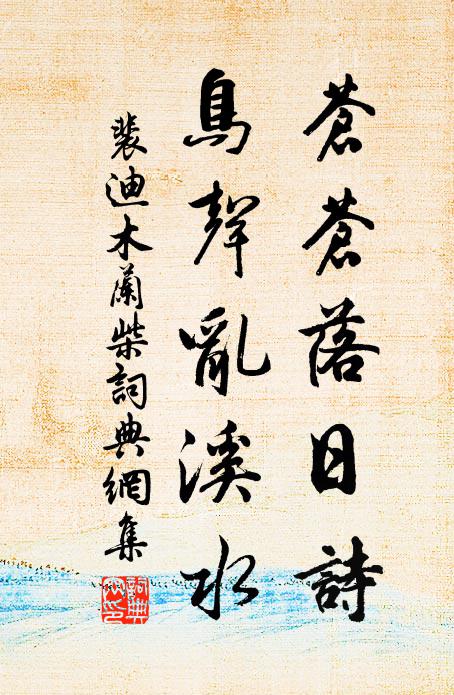 蒼蒼落日詩
鳥聲亂溪水
裴迪木蘭柴詞典網集